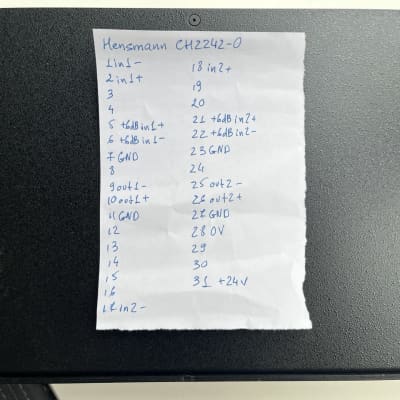 Hensmann CH2242-0
1 in1-
2 in1+
3
4
5 +6dB in1+
6 +6dB in1-
7 GND
8
9 out1-
10 out1+
11 GND
12
13
14
15
16
17 in2-
18 in2+
19
20
21 +6dB in2+
22 +6dB in2-
23 GND
24
25 out2-
26 out2+
27 GND
28 0V
29
30
31 +24V